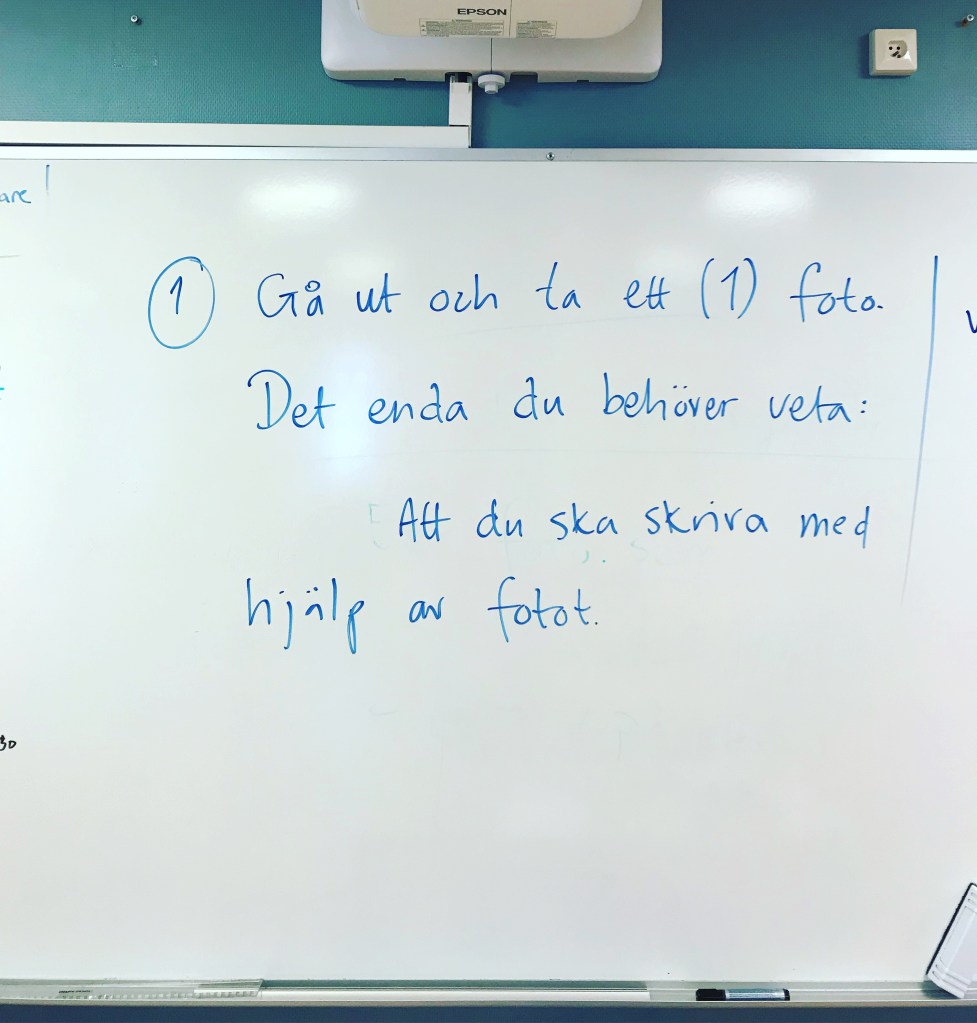 EPSON
are
1 Gå ut och ta ett (1) foto.
Det enda du behöver veta:
Att du ska skriva med
hjälp av fotot.
30